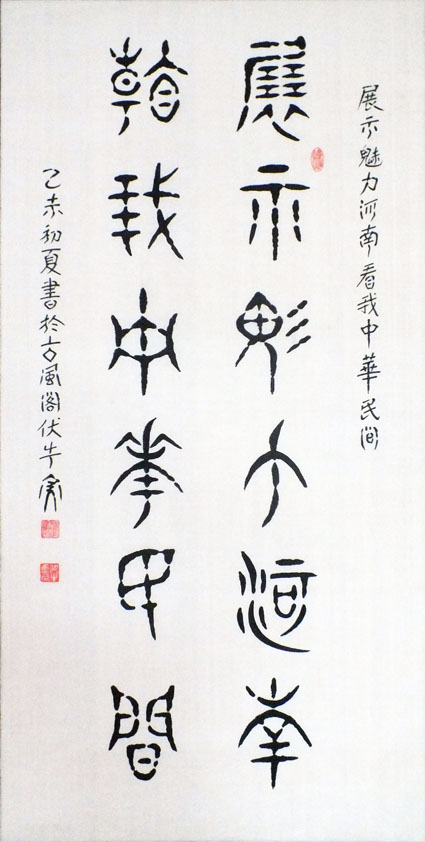 展示魅力河南看我中華民間
展示魅力河南
看我中華民間
乙未初夏書於古風閣伏牛